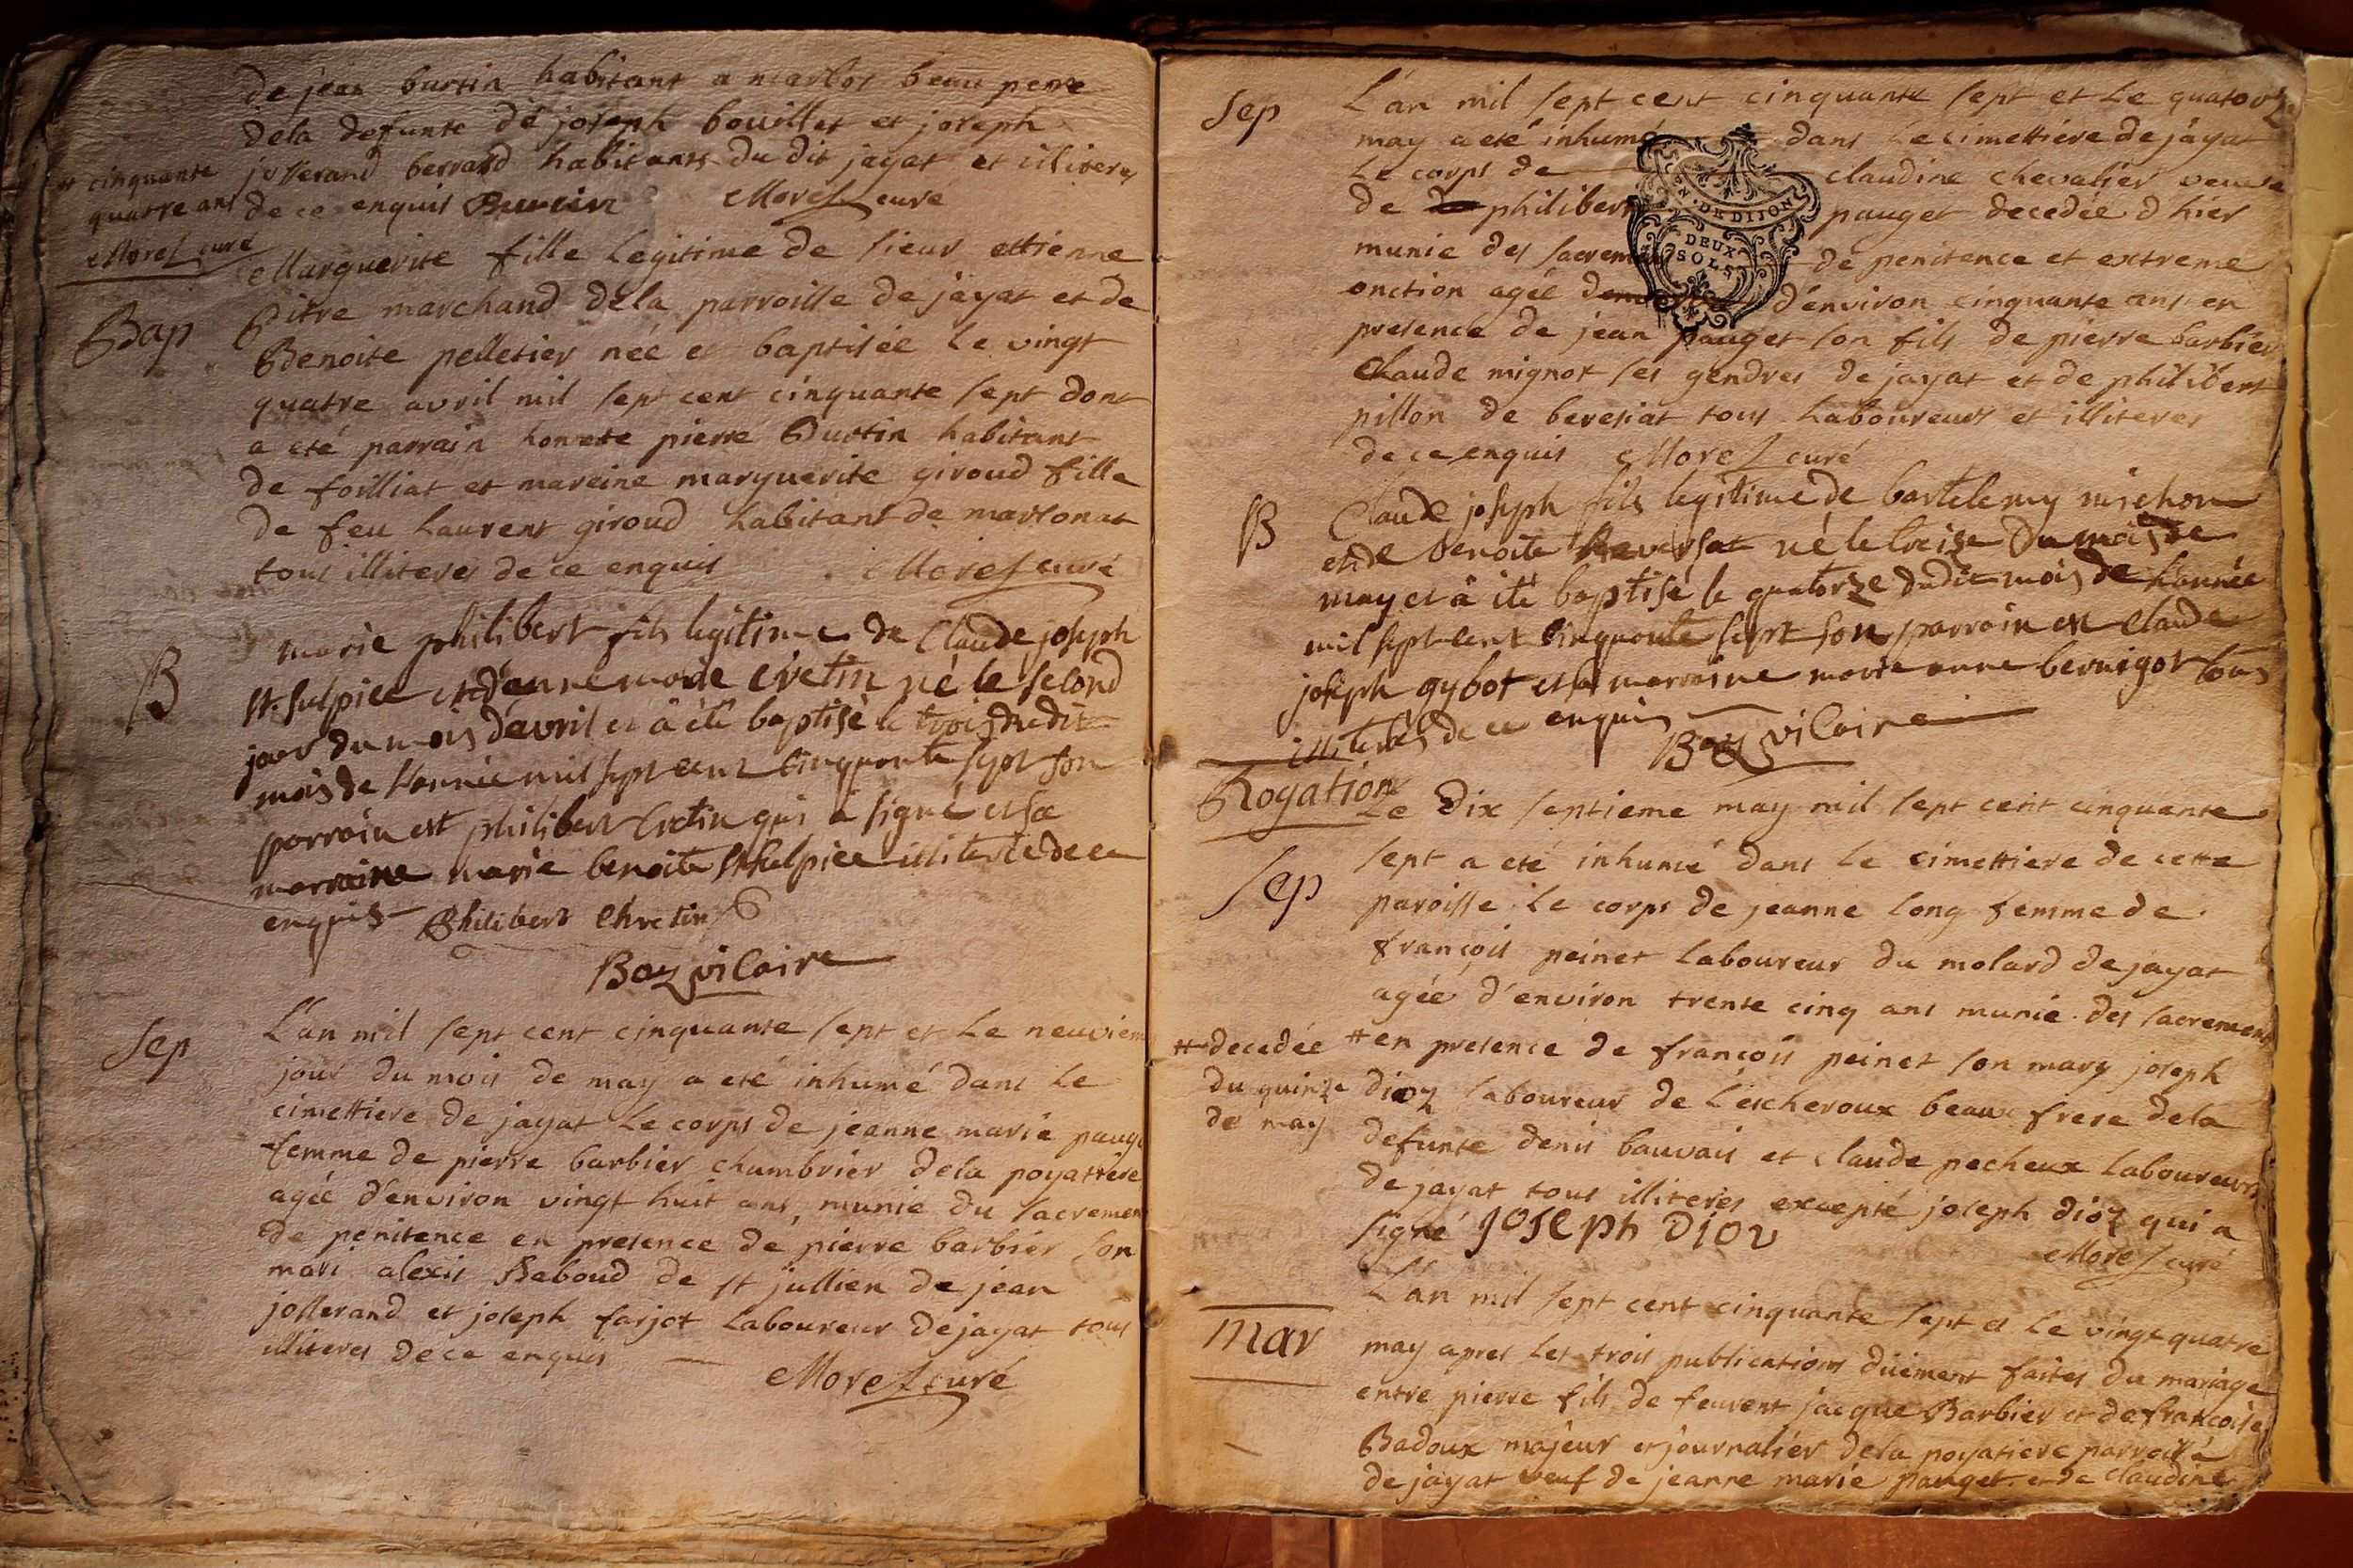 de jean burtin habitant a marbos beau pere
dela defunte de joseph bouillet et joseph
# cinquante
quatre ans
Morel curé
josserand berrard habitants du dit jayat et illiteres
de ce enquis Burtin Morel curé
Bap
Marguerite fille legitime de sieur ettienne
Pitre marchand dela parroisse de jayat et de
Benoite pelletier née et baptisée le vingt
quatre avril mil sept cent cinquante sept dont
a eté parrain honete pierre Burtin habitant
de foilliat et mareine marguerite giroud fille
de feu laurent giroud habitant de marsonat
tous illiteres de ce enquis Morel curé
B
marie philibert fils legitime de Claude joseph
st. sulpice et d'anne marie Crétin né le second
jour du mois d'avril et à été baptisé le trois dudit
mois de l'année mil sept cent cinquante sept son
parrain est philibert Cretin qui a signé et sa
marraine marie benoite st sulpice illiterée de ce
enquis Philibert Chretin
Boz vicaire
Sep
L'an mil sept cent cinquante sept et le neuviem
jour du mois de may a eté inhumé dans le
cimettiere de jayat le corps de jeanne marie pauge
femme de pierre barbier chambrier dela poyatiere
agée d'environ vingt huit ans, munie du sacremen
de penitence en presence de pierre barbier son
mari alexis Raboud de st jullien de jean
josserand et joseph farjot laboureur de jayat tous
illiteres de ce enquis Morel curé
Sep
L'an mil sept cent cinquante sept et le quatorze
may a eté inhumé dans le cimettiere de jayat
le corps de claudine chevalier veuve
de philibert pauget decedée d'hier
munie des sacremen de penitence et extreme
onction agée d'environ cinquante ans en
presence de jean pauget son fils de pierre barbier
claude mignot ses gendres de jayat et de philibert
pillon de beresiat tous laboureurs et illiteres
de ce enquis Morel curé
DE DIJON
DEUX
SOLS
B
Claude joseph fils legitime de bartelemy michon
et de benoite Reversat né le treise du mois de
may et à été baptisé le quatorze dudit mois de l'année
mil sept cent cinquante sept son parrain est claude
joseph gybot et la marraine marie anne bernigot tous
illiterés de ce enquis Boz vicaire
Rogation
Sep
Le dix septieme may mil sept cent cinquante
sept a eté inhumé dans le cimettiere de cette
paroisse le corps de jeanne long femme de
françois peinet laboureur du molard de jayat
agée d'environ trente cinq ans munie des sacrements
# decedée
du quinze
de may
# en presence de françois peinet son mary joseph
dioz laboureur de lescheroux beaux frere dela
defunte denis bauvais et claude pecheux laboureurs
de jayat tous illiteres excepté joseph dioz qui a
signé JOSEPh DIOZ
Morel curé
Mar
L'an mil sept cent cinquante sept et le vingt quatre
may apres les trois publications duement faites du mariage
entre pierre fils de feurent jacque Barbier et de francoise
Badoux majeur et journalier dela poyatiere parroisse
de jayat veuf de jeanne marie pauget et de claudine